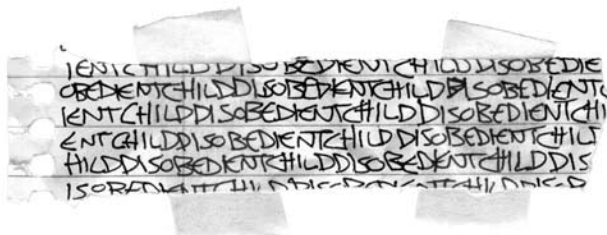 IENTCHILDDISOBEDIENTCHILDDISOBEDIE
OBEDIENTCHILDDISOBEDIENTCHILDDISOBEDIENTC
IENTCHILDDISOBEDIENTCHILDDISOBEDIENTCHI
ENTCHILDDISOBEDIENTCHILDDISOBEDIENTCHILD
HILDDISOBEDIENTCHILDDISOBEDIENTCHILDDIS
ISOBEDIENTCHILDDISOBEDIENTCHILDDISOB